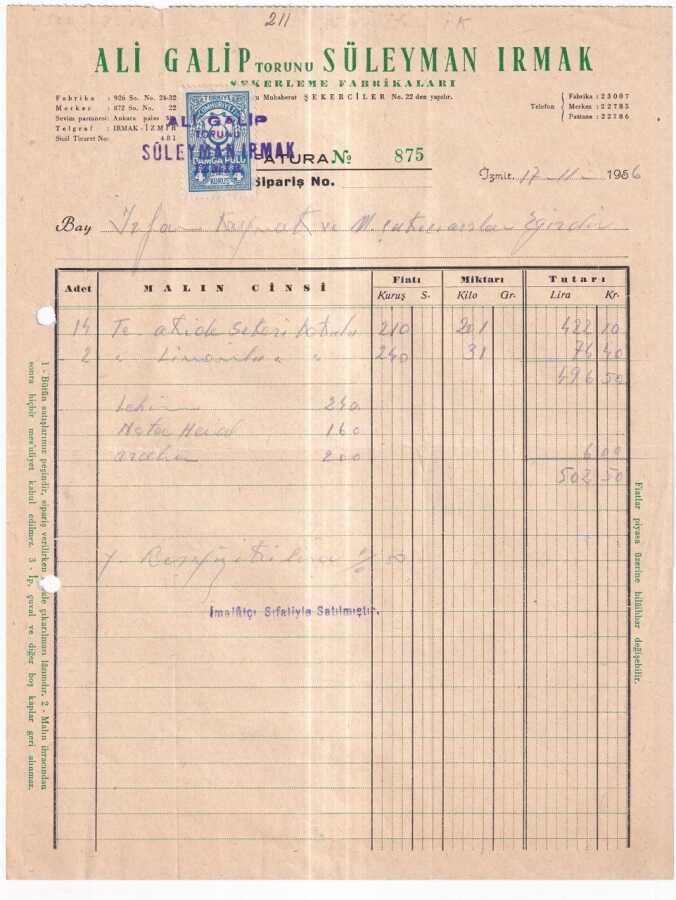 211
ALİ GALİP TORUNU SÜLEYMAN IRMAK
ŞEKERLEME FABRİKALARI
Fabrika : 926 So. No. 24-32
Merker : 872 So. No. 22
Sevim pastanesi: Ankara palas
Telgraf : IRMAK - İZMİR
Sicil Ticaret No: 481
Muhaberat ŞEKERCİLER No. 22 den yapılır.
Telefon
Fabrika : 23007
Merkez : 22785
Pastane : 22786
TÜRKİYE
CUMHURİYETİ
DAMGA PULU
4 KURUŞ 4
ALİ GALİP
TORUNU
SÜLEYMAN IRMAK
İZMİR
FATURA № 875
Sipariş No.
İzmir, 17-11-1956
Bay İrfan Kaynak ve Eğirdir
Adet MALIN CİNSİ Fiatı Miktarı Tutarı
Kuruş S. Kilo Gr. Lira Kr.
14 Te akide şekeri kutulu 210 201 422 10
2 " Limonlu " " 240 31 74 40
496 50
240
160
200 6 00
502 50
İmalâtçı Sıfatiyle Satılmıştır.
1 - Bütün satışlarımız peşindir, sipariş verilirken çıkarılması lâzımdır. 2 - Malın ihracından
sonra hiçbir mes'uliyet kabul edilmez. 3 - İp, çuval ve diğer boş kaplar geri alınmaz.
Fiatlar piyasa üzerine bilâihbar değişebilir.